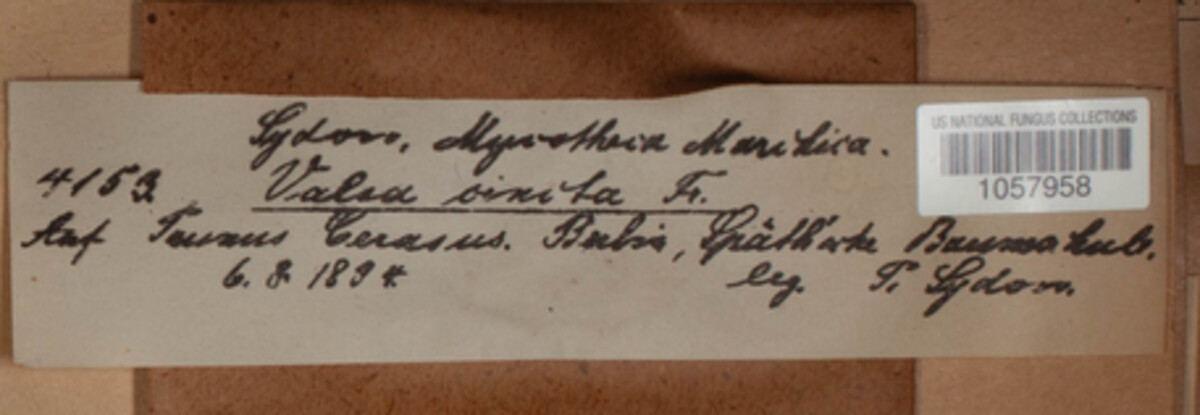 Sydow, Mycotheca Marchica.
4153 Valsa cincta Fr.
Auf Prunus Cerasus. Berlin, Späth'sche Baumschule.
6. 8. 1894 leg. P. Sydow.
US NATIONAL FUNGUS COLLECTIONS
1057958